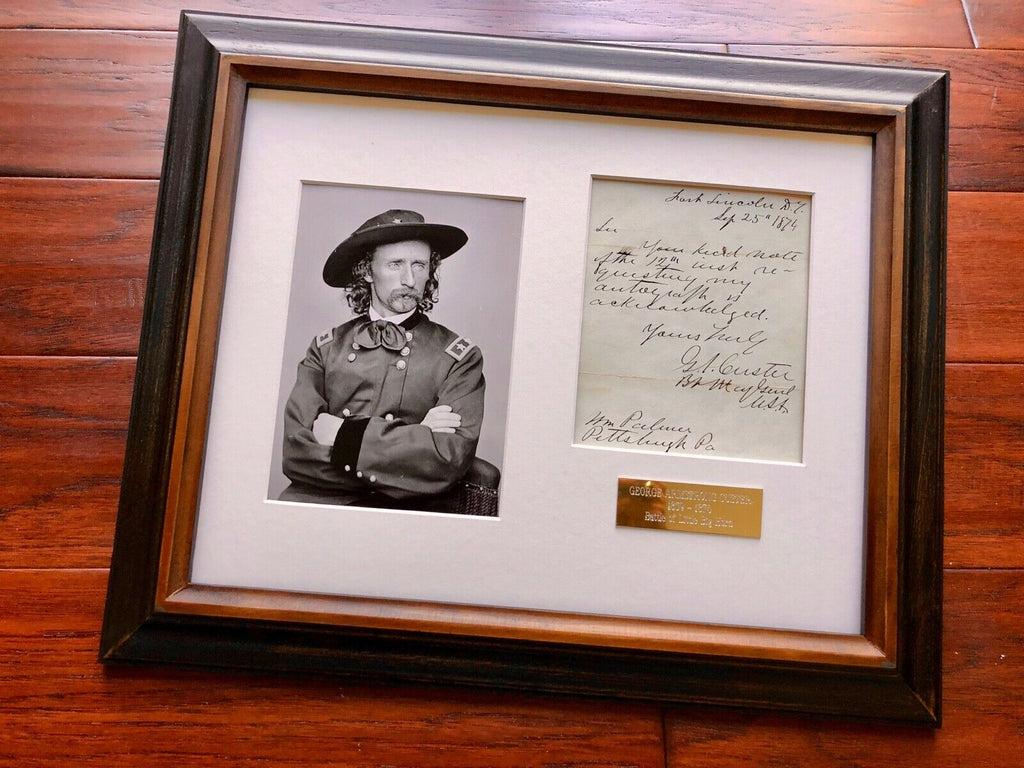 Fort Lincoln D.T.
Sep 25th 1874
Sir
Your kind note
of the 17th inst re-
questing my
autograph is
acknowledged.
Yours Truly
G A Custer
Bt Maj Genl
USA
Wm Palmer
Pittsburgh Pa
GEORGE ARMSTRONG CUSTER
1839 - 1876
Battle of Little Big Horn